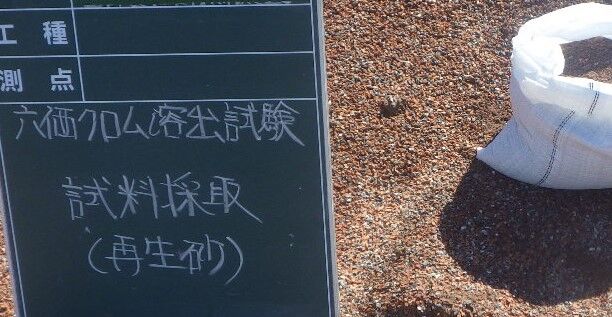 工種
測点
六価クロム溶出試験
試料採取
(再生砂)